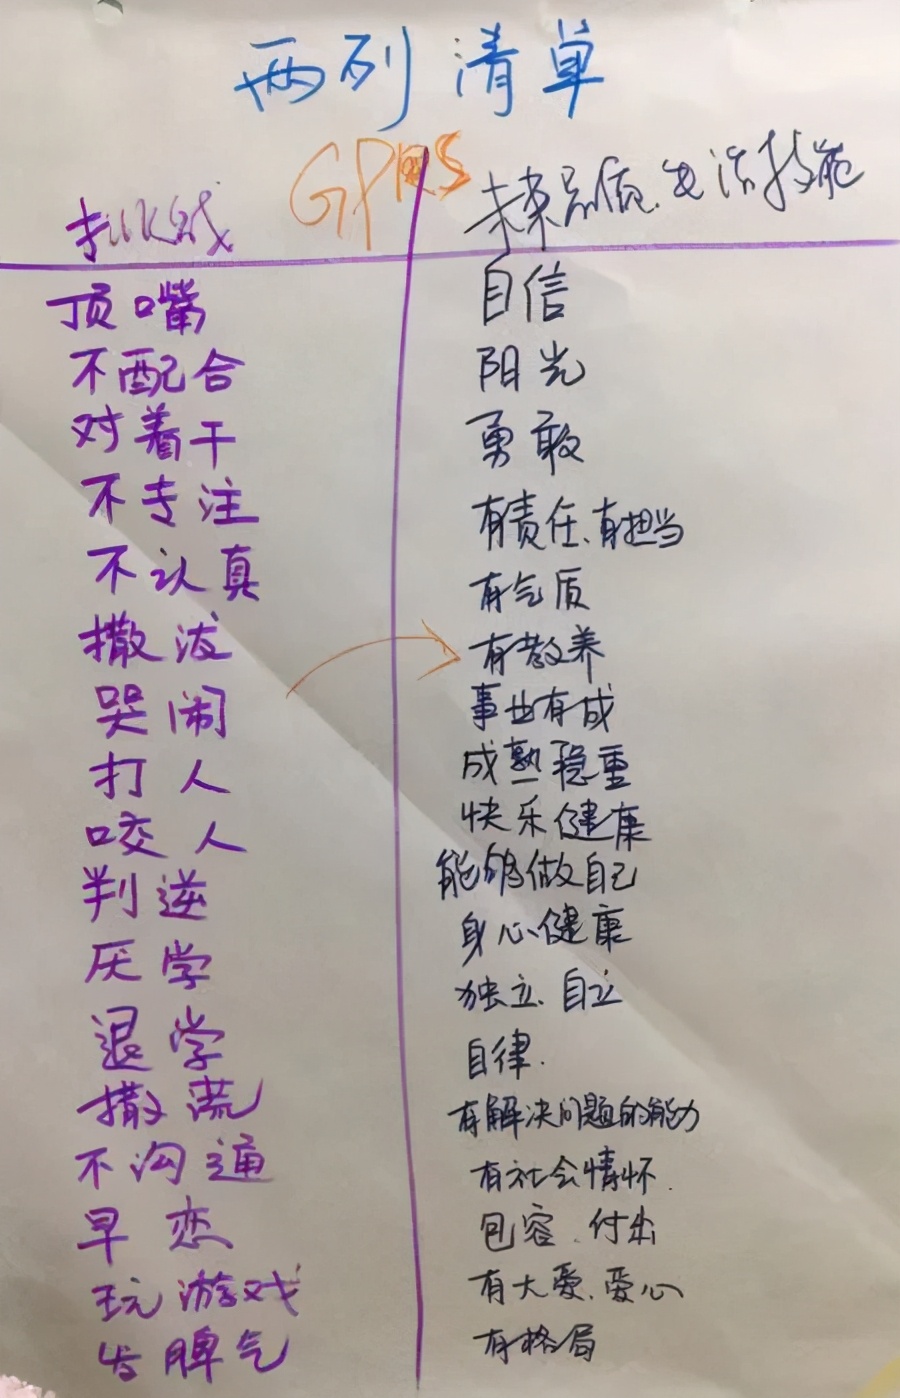 两列清单
GPRS
挑战
顶嘴
不配合
对着干
不专注
不认真
撒泼
哭闹
打人
咬人
判逆
厌学
退学
撒谎
不沟通
早恋
玩游戏
发脾气
未来品质、生活技能
自信
阳光
勇敢
有责任、有担当
有气质
有教养
事业有成
成熟稳重
快乐健康
能够做自己
身心健康
独立、自立
自律.
有解决问题的能力
有社会情怀.
包容、付出
有大爱、爱心
有格局